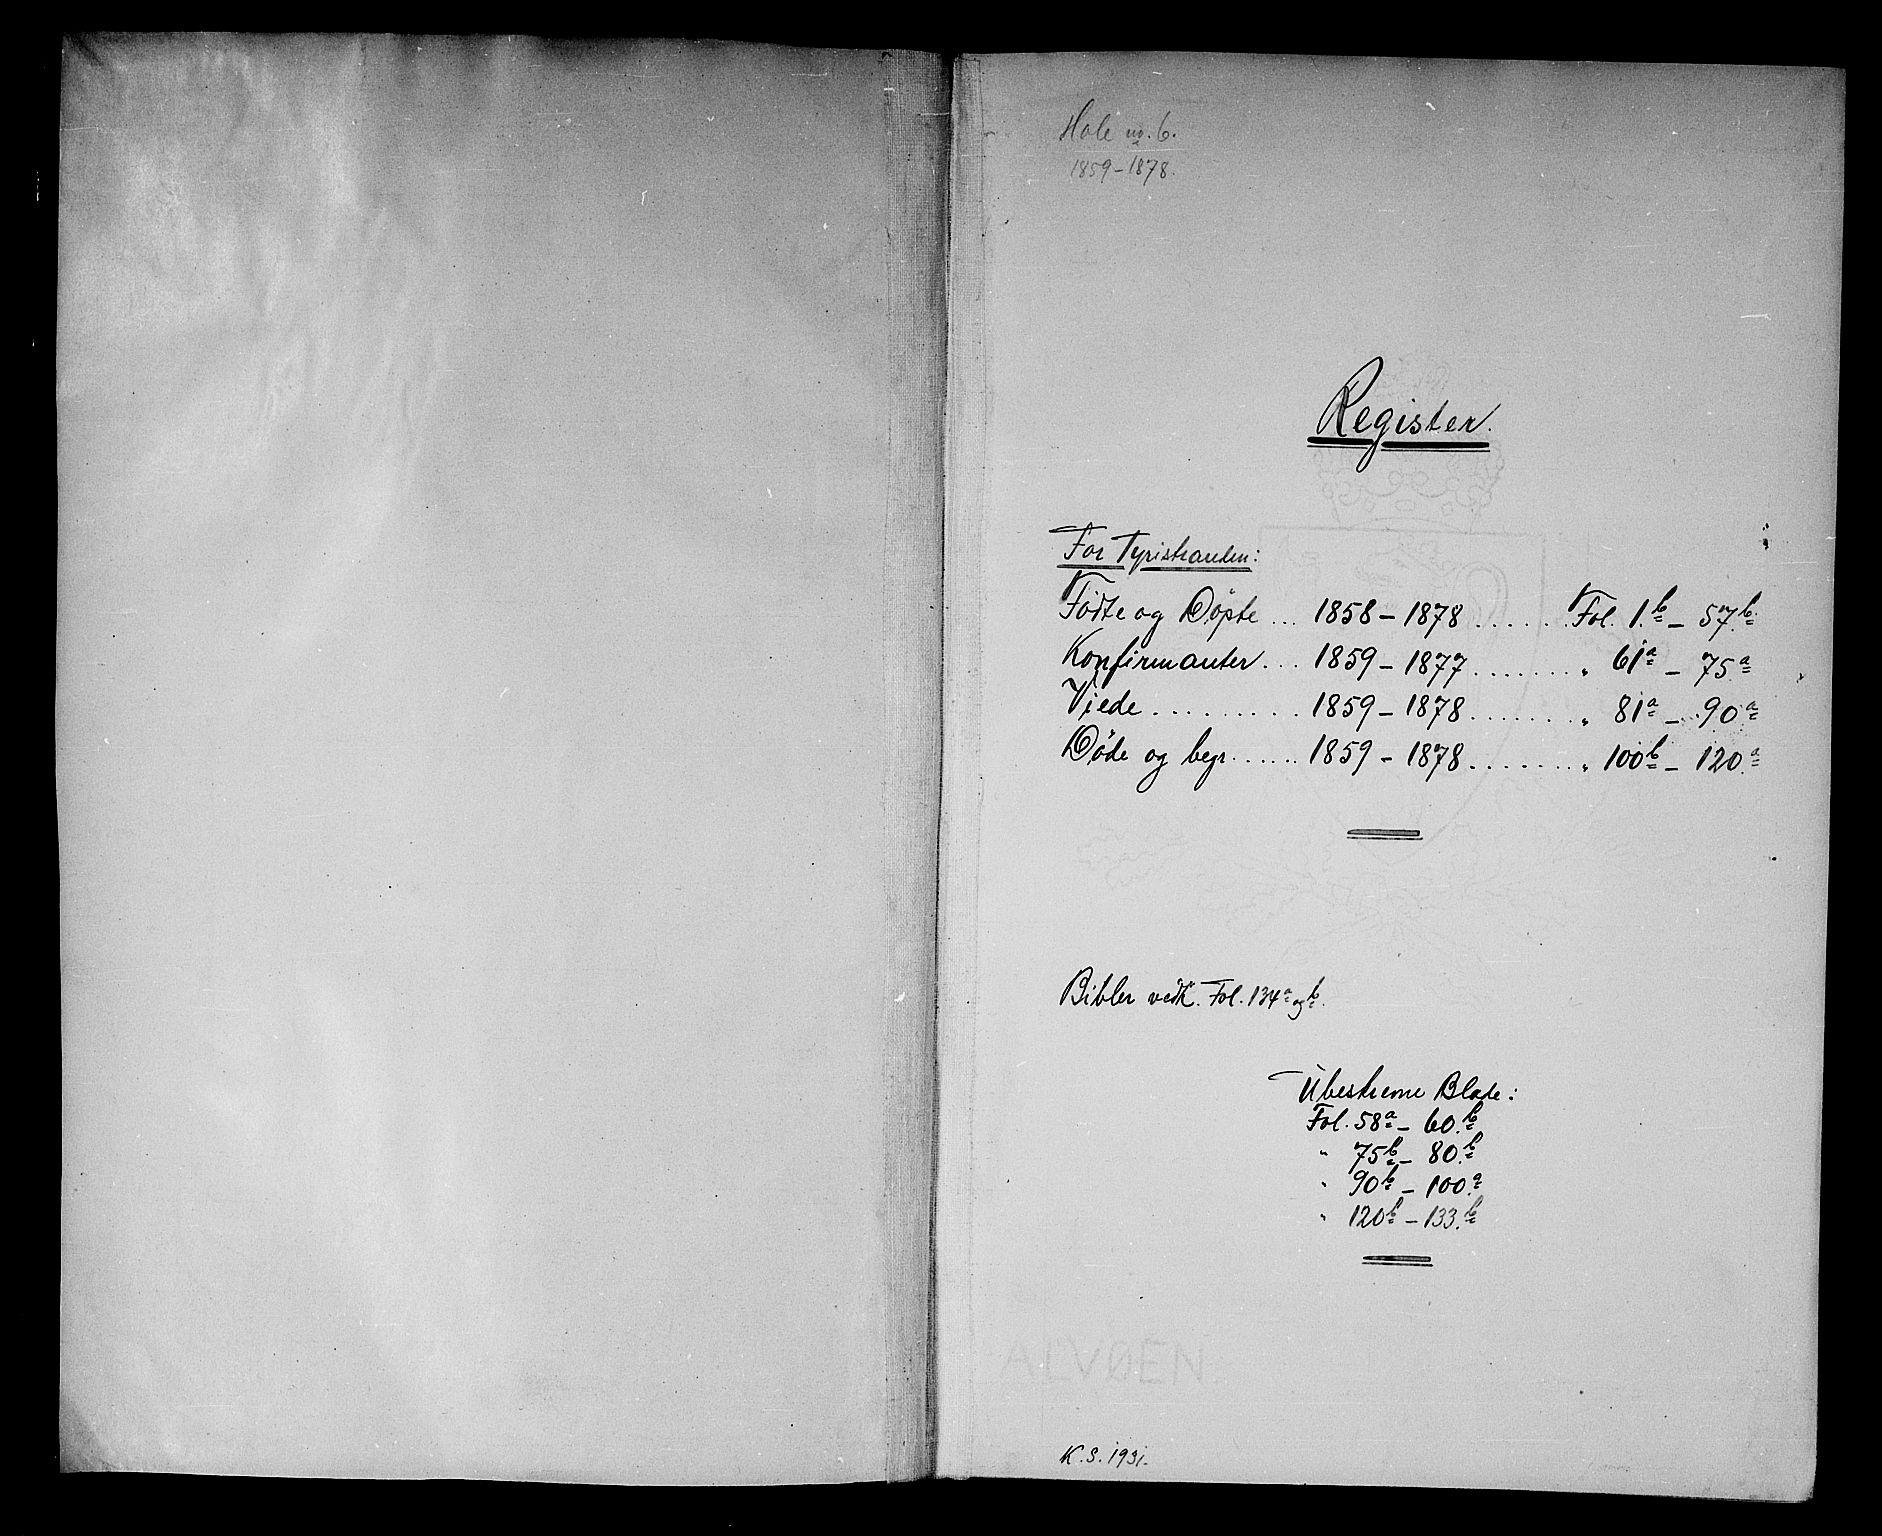 Hole no. 6.
1859-1878.
Register.
For Tyristranden:
Födte og Döpte ... 1858 - 1878 ...... Fol. 1.b - 57.b
Konfirmanter ... 1859 - 1877 ....... " 61a - 75.a
Viede .......... 1859 - 1878 ....... " 81a - 90.a
Döde og begr. ..... 1859 - 1878 ....... " 100b - 120.a
Bibler vedk. Fol. 134a og b.
Ubeskrevne Blade:
Fol. 58a - 60.b
" 75b - 80.b
" 90b - 100.a
" 120b - 133.b
ALVØEN
K.S. 1931.